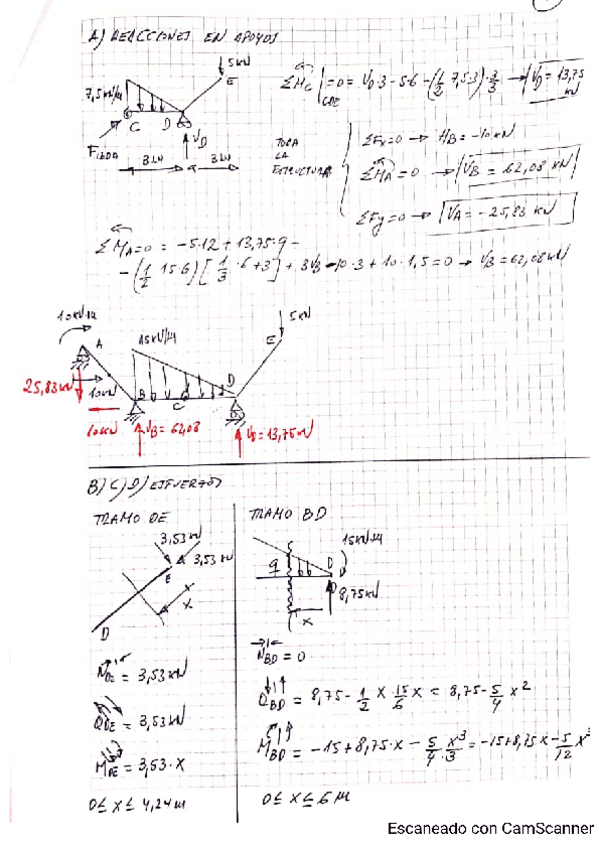 A) REACCIONES EN APOYOS
5kN
E
7,5kN/m
C
D
V_D
FICHA
3m
3m
ΣM_C|_CDE = 0 = V_D·3 - 5·6 - (1/2 7,5·3)·3/3 → V_D = 13,75 kN
TODA LA ESTRUCTURA
ΣFx=0 → H_B = -10kN
ΣM_A=0 → V_B = 62,08 kN
ΣFy=0 → V_A = -25,83 kN
ΣM_A=0 = -5·12 + 13,75·9 -
- (1/2 15·6)[1/3·6+3] + 3V_B - 10·3 + 10·1,5 = 0 → V_B = 62,08kN
10kN·m
A
15kN/m
5kN
E
25,83kN
10kN
B
C
D
10kN
V_B = 62,08
V_D = 13,75kN
B) C) D) ESFUERZOS
TRAMO DE
3,53kN
3,53kN
E
x
x
D
N_DE = 3,53kN
Q_DE = 3,53kN
M_DE = 3,53·x
0 ≤ x ≤ 4,24m
TRAMO BD
15kN·m
q
D
8,75kN
x
N_BD = 0
Q_BD = 8,75 - 1/2 x·15/6 x = 8,75 - 5/4 x²
M_BD = -15+8,75·x - 5/4 x³/3 = -15+8,75x - 5/12 x³
0 ≤ x ≤ 6m
Escaneado con CamScanner